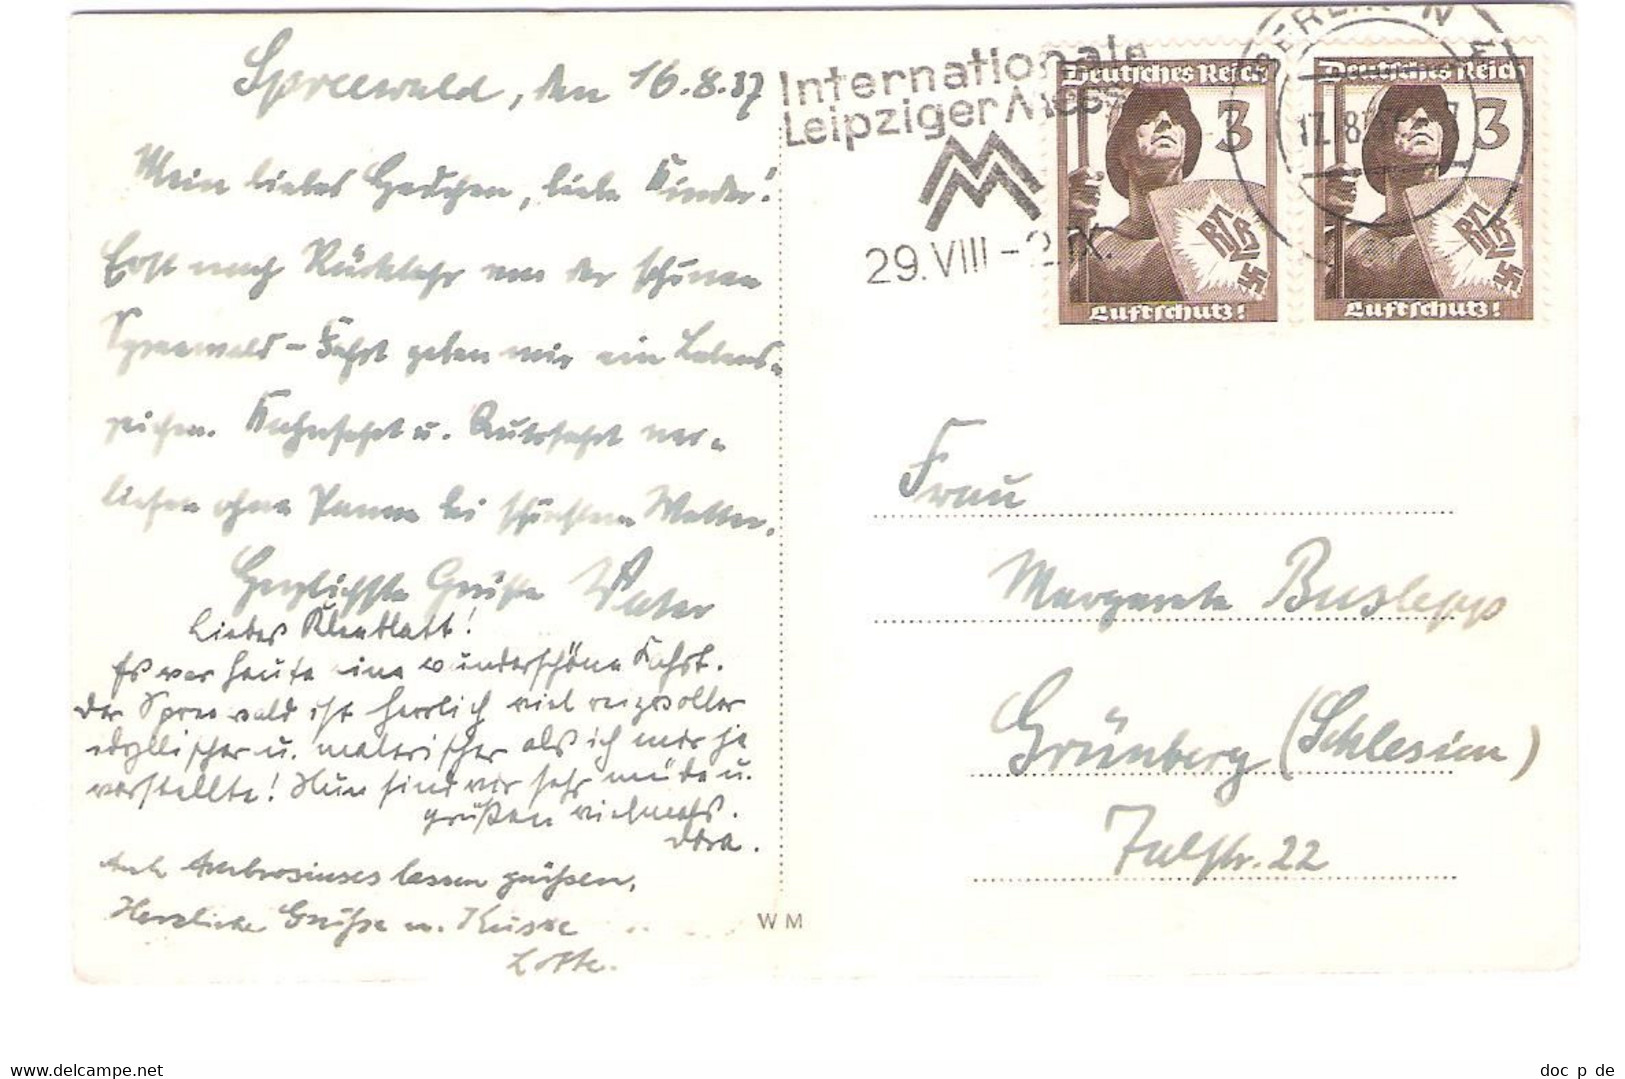 Spreewald, den 16.8.37
Mein liebes Gretchen, liebe Kinder!
Erst nach Rückkehr von der schönen
Spreewald-Fahrt geben wir ein Lebens-
zeichen. Kahnfahrt u. Autofahrt ver-
liefen ohne Panne bei schönstem Wetter.
Herzlichste Grüße Vater
Liebes Kleeblatt!
Es war heute eine wunderschöne Fahrt.
Der Spreewald ist herrlich viel reizvoller
idyllischer u. malerischer als ich mir je
vorstellte! Nun sind wir sehr müde u.
grüßen vielmals.
Dora.
Auch Ambrosiuses lassen grüßen.
Herzliche Grüße u. Küsse
Lotte.
WM
Internationale
Leipziger Messe
MM
29.VIII-2.IX.
BERLIN N
17.8
Deutsches Reich
3
RLB
Luftschutz!
Deutsches Reich
3
RLB
Luftschutz!
Frau
Margarete Buslepp
Grünberg (Schlesien)
22
www.delcampe.net
doc_p_de